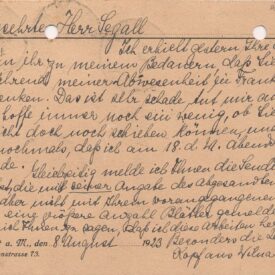 eehrte Herr Segall
Ich erhielt gestern Ihre
in ihr zu meinem Bedauern, daß Sie
ährend meiner Abwesenheit in Frank
enken. Das ist sehr schade, tut mir au
hoffe immer noch ein wenig, ob Sie
cht doch noch schieben können, un
nochmals, daß ich am 18. d. M. Abend
de.
Gleichzeitig melde ich Ihnen die Send
st, die mit seiner Angabe des Abgesandte
ber nicht mit Ihrem vorangegangenen
eine größere Anzahl Blätter gemelde
ich Ihnen zu sagen, daß diese Arbeiten
a. M., den 8. August 1923 Besonders die
nstrasse 73. Kopf aus Wilna